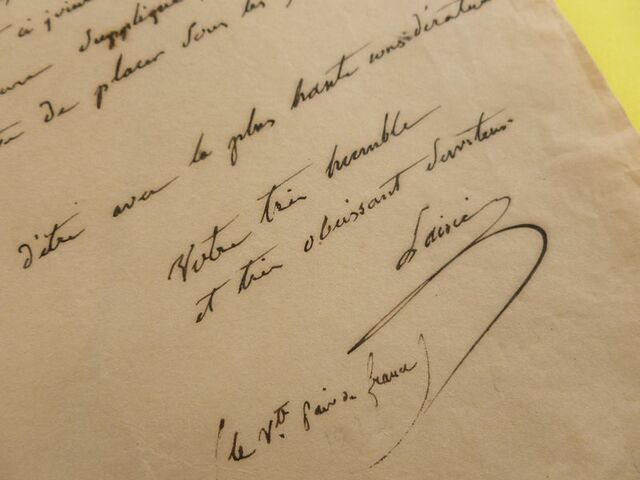 ci joint
supplique
de placer sous les
d'être avec la plus haute considération
Votre très humble
et très obéissant serviteur.
Lainé
(le Vte. pair de france)